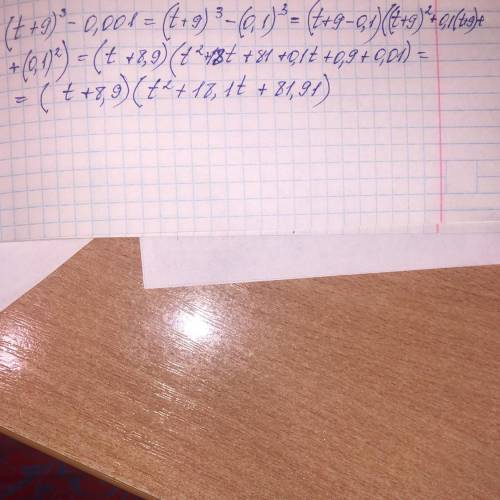 (t+9)³ - 0,001 = (t+9)³ - (0,1)³ = (t+9-0,1)((t+9)² + 0,1(t+9) +
+ (0,1²) = (t + 8,9)(t² + 18t + 81 + 0,1t + 0,9 + 0,01) =
= (t + 8,9)(t² + 18,1t + 81,91)